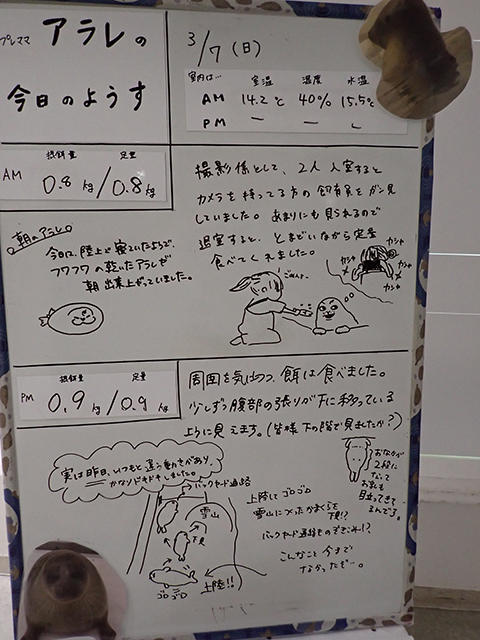 プレママ アラレの
今日のようす
3/7(日)
室内は… 室温 湿度 水温
AM 14.2℃ 40% 15.5℃
PM — — —
AM 摂餌量 定量
0.8kg/0.8kg
撮影係として、2人入室すると
カメラを持ってる方の飼育員をガン見
していました。あまりにも見られるので
退室すると、とまどいながら定量
食べてくれました。
朝のアラレ
今日は、陸上で寝ていたようで、
フワフワの乾いたアラレが
朝出来上がっていました。
ごはんよー
カシャ
カシャ
カシャ
カシャ
PM 摂餌量 定量
0.9kg/0.9kg
周囲を気にしつつ、餌は食べました。
少しずつ腹部の張りが下に移っている
ように見えます。(皆様下の階で見ましたか?)
実は昨日、いつもと違う動きがあり、
かなりドキドキしました。
バックヤード通路
雪山
下見
ゴロゴロ
上陸!!
上陸してゴロゴロ
雪山につくったかまくらを
下見!?
バックヤード通路ものぞきこみ!?
こんなこと今まで
なかったぞー。
おなかが
2段に
なって
おへそも
目立ってきて
るんです。